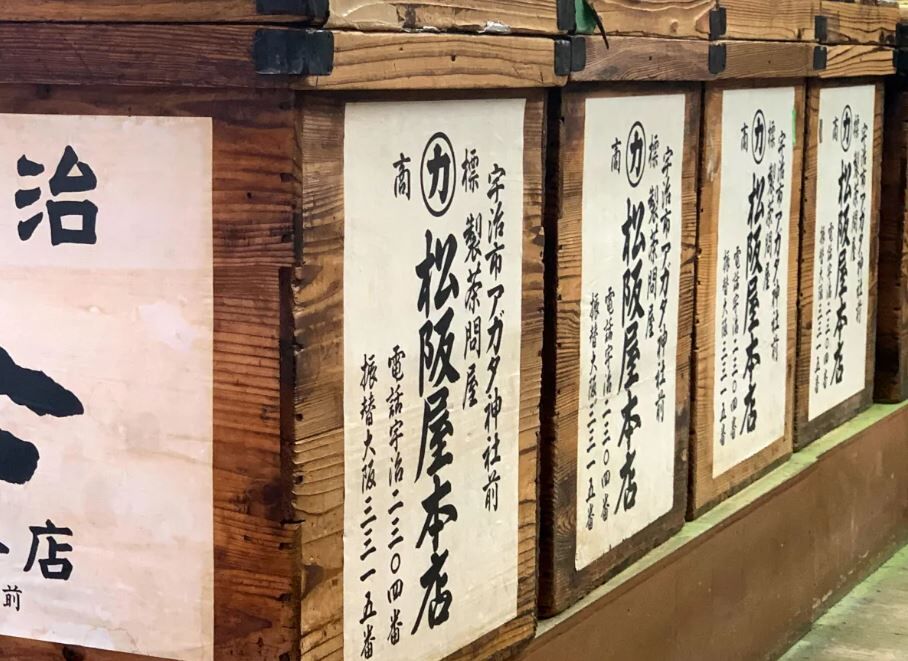 治
店
前
宇治市アガタ神社前
商カ標
製茶問屋
松阪屋本店
電話宇治二三〇四番
振替大阪三三一五番
宇治市アガタ神社前
商カ標
製茶問屋
松阪屋本店
電話宇治二三〇四番
振替大阪三三一五番
宇治市アガタ神社前
商カ標
製茶問屋
松阪屋本店
電話宇治二三〇四番
振替大阪三三一五番
宇治市アガタ神社前
商カ標
製茶問屋
松阪屋本店
電話宇治二三〇四番
振替大阪三三一五番